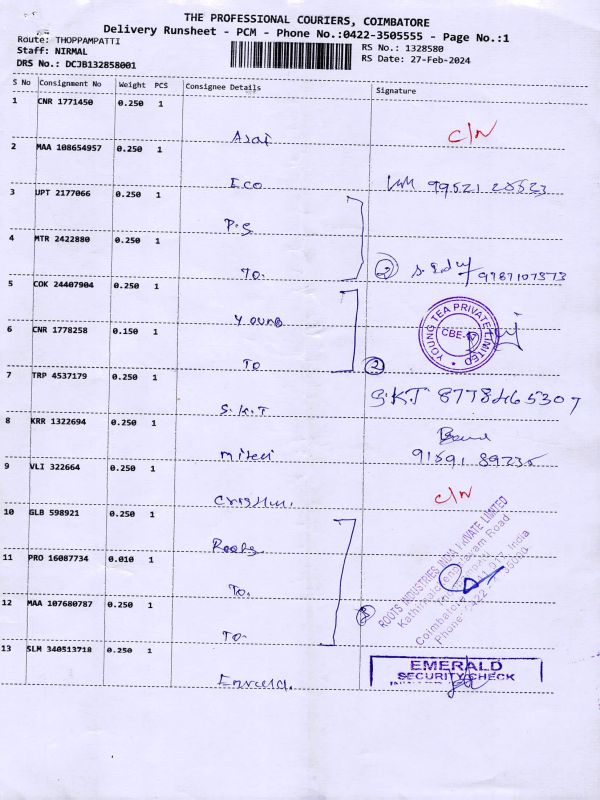 THE PROFESSIONAL COURIERS, COIMBATORE
Delivery Runsheet - PCM - Phone No.:0422-3505555 - Page No.:1
Route: THOPPAMPATTI
Staff: NIRMAL
DRS No.: DCJB132858001
RS No.: 1328580
RS Date: 27-Feb-2024
S No Consignment No Weight PCS Consignee Details Signature
1 CNR 1771450 0.250 1
Asai C/N
2 MAA 108654957 0.250 1
Eco
3 UPT 2177066 0.250 1
P.S
4 MTR 2422880 0.250 1
To. 2 9787107573
5 COK 24407904 0.250 1
Young
YOUNG TEA PRIVATE LIMITED
CBE-
6 CNR 1778258 0.150 1
To 2
7 TRP 4537179 0.250 1
S.K.T S.K.T 8778465307
8 KRR 1322694 0.250 1
Miteci
9 VLI 322664 0.250 1
C/N
10 GLB 598921 0.250 1
Roots
ROOTS INDUSTRIES INDIA PRIVATE LIMITED
11 PRO 16087734 0.010 1
To.
12 MAA 107680787 0.250 1
To
13 SLM 340513718 0.250 1
EMERALD
SECURITY CHECK